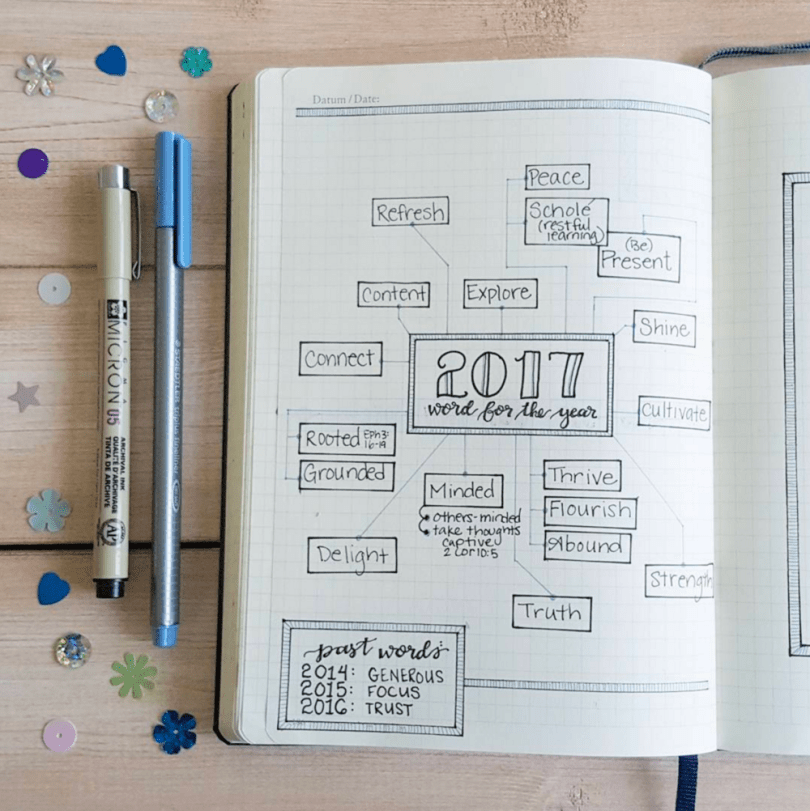 Datum / Date:
Peace
Scholé
(restful
learning)
(Be)
Present
Refresh
Content
Explore
Shine
Connect
2017
word for the year
Cultivate
Rooted Eph 3:
16-19
Grounded
Minded
• others-minded
• take thoughts
captive
2 Cor 10:5
Thrive
Flourish
Abound
Delight
Strength
Truth
past words:
2014: GENEROUS
2015: FOCUS
2016: TRUST
MICRON 05
ARCHIVAL INK
TINTA DE ARCHIVE
STAEDTLER